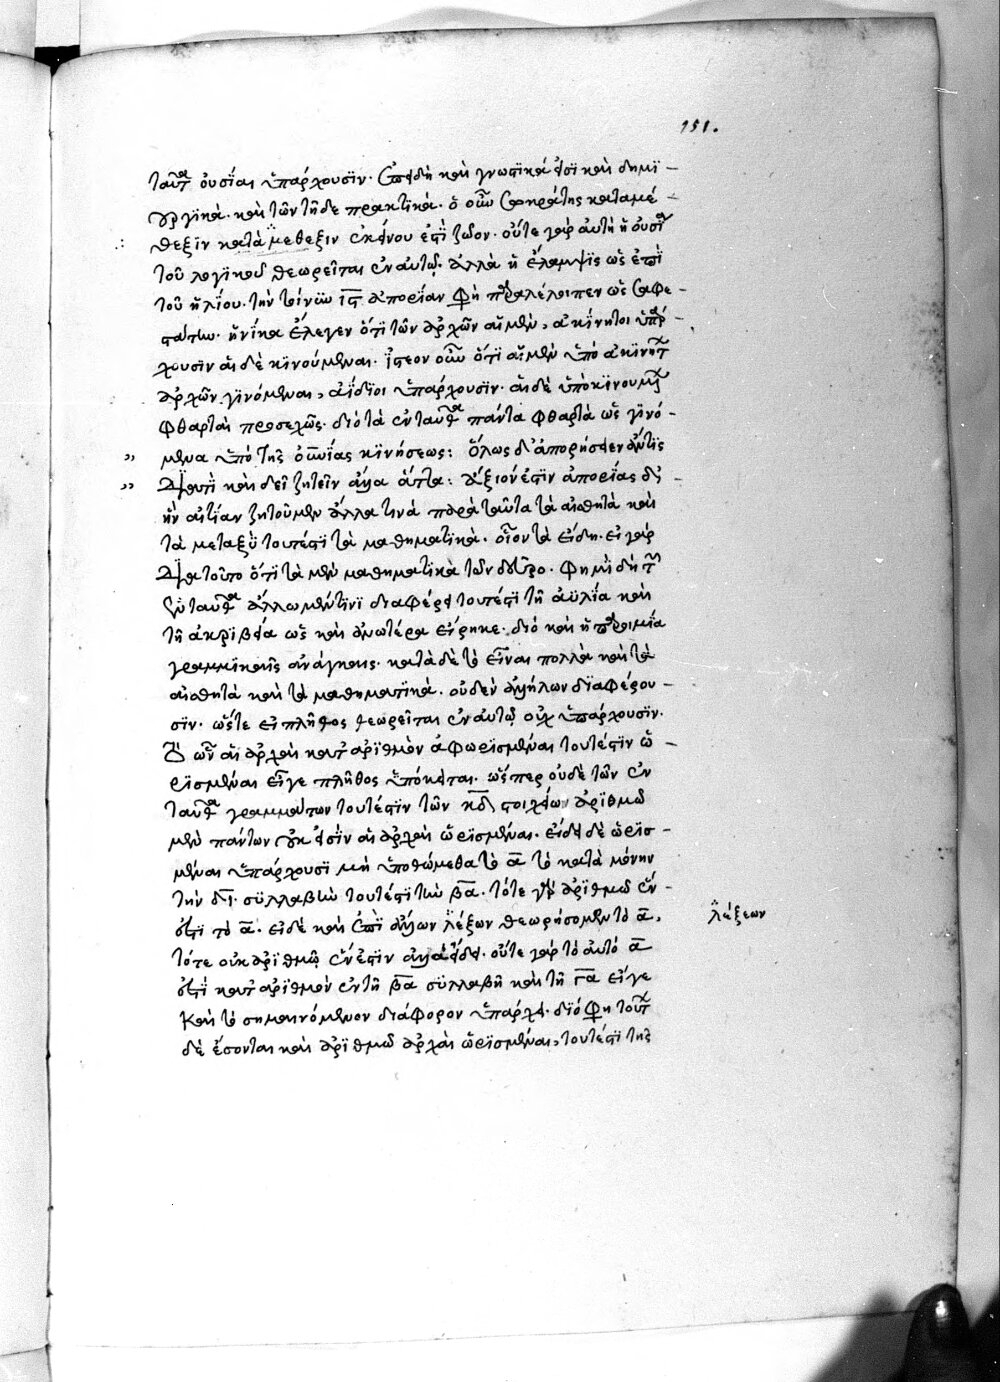 151.
ταῦτα οὐσίαι ὑπάρχουσιν. ἐπειδὴ καὶ γνωστικά εἰσι καὶ δημι-
ουργικὰ. καὶ τῶν τῇδε πρακτικά. ὁ οὖν Σωκράτης κατα μέ-
θεξιν κατὰ μέθεξιν ἐκείνου ἐστὶ ζῶον. οὔτε γὰρ αὐτὴ ἡ οὐσία
τοῦ λογικοῦ θεωρεῖται ἐν αὐτῷ. ἀλλὰ ἡ ἔλαμψις ὡς ἐπὶ
τοῦ ἡλίου. τὴν τοίνυν ἀπορίαν φησὶ παραλέλοιπεν ὡς σαφε-
στάτην. ἡνίκα ἔλεγεν ὅτι τῶν ἀρχῶν αἱ μὲν, ἀκίνητοι ὑπάρ-
χουσιν αἱ δὲ κινούμεναι. ἰστέον οὖν ὅτι αἱ μὲν ὑπὸ ἀκινήτων
ἀρχῶν γινόμεναι, ἀΐδιοι ὑπάρχουσιν. αἱ δὲ ὑπὸ κινουμένων
φθαρταὶ προσεχῶς. διὸ τὰ ἐνταῦθα πάντα φθαρτὰ ὡς γινό-
μενα ὑπὸ τῆς οὐρανίας κινήσεως: ὅλως δ' ἀπορήσειεν ἄν τις
διατί καὶ δεῖ ζητεῖν ἄλλα ἄττα: ἄξιόν ἐστιν ἀπορίας δι'
ἣν αἰτίαν ζητοῦμεν ἄλλα τινὰ παρὰ ταῦτα τὰ αἰσθητὰ καὶ
τὰ μεταξὺ τουτέστι τὰ μαθηματικὰ. οἷον τὰ εἴδη. εἰ γὰρ
διατοῦτο ὅτι τὰ μὲν μαθηματικὰ τῶν δεῦρο. φημὶ δὴ τῶν
ἐνταῦθα ἄλλω μέν τινι διαφέρει τουτέστι τῇ ἀϋλία καὶ
τῇ ἀκριβεία ὡς καὶ ἀνωτέρα εἴρηκε. διό καὶ ἡ παροιμία
γραμμικαῖς ἀνάγκαις. κατὰ δὲ τὸ εἶναι πολλὰ καὶ τὰ
αἰσθητὰ καὶ τὰ μαθηματικὰ. οὐδὲν ἀλλήλων διαφέρου-
σιν. ὥστε εἰ πλῆθος θεωρεῖται ἐν αὐτῷ οὐχ ὑπάρχουσιν.
οὖν αἱ ἀρχαὶ κατ' ἀριθμὸν ἀφωρισμέναι τουτέστιν ὡ-
ρισμέναι εἴγε πλῆθος ὑπόκειται. ὥσπερ οὐδὲ τῶν ἐν
ταῦθα γραμμάτων τουτέστιν τῶν κδ στοιχείων ἀριθμῷ
μὲν πάντων οὐκ εἰσὶν αἱ ἀρχαὶ ὡρισμέναι. εἴδει δὲ ὡρισ-
μέναι ὑπάρχουσι μὴ ὑποθώμεθα τὸ α τὸ κατὰ μόνην
τὴν δι. συλλαβὴν τουτέστι τὴν βα. τότε γὰρ ἀριθμῷ ἕν-
ἐστι τὸ α. εἰ δὲ καὶ ἐπὶ ἄλλων λέξεων θεωρήσομεν τὸ α,
λέξεων
τότε οὐκ ἀριθμῷ ἕν ἐστιν ἀλλὰ εἴδει. οὔτε γὰρ τὸ αὐτό α
ἐστὶ κατ' ἀριθμὸν ἐν τῇ βα συλλαβῇ καὶ τῇ γα εἴγε
καὶ τὸ σημαινόμενον διάφορον ὑπάρχει. διό φησι τούτων
δὲ ἔσονται καὶ ἀριθμῷ ἀρχαὶ ὡρισμέναι, τουτέστι τῆς